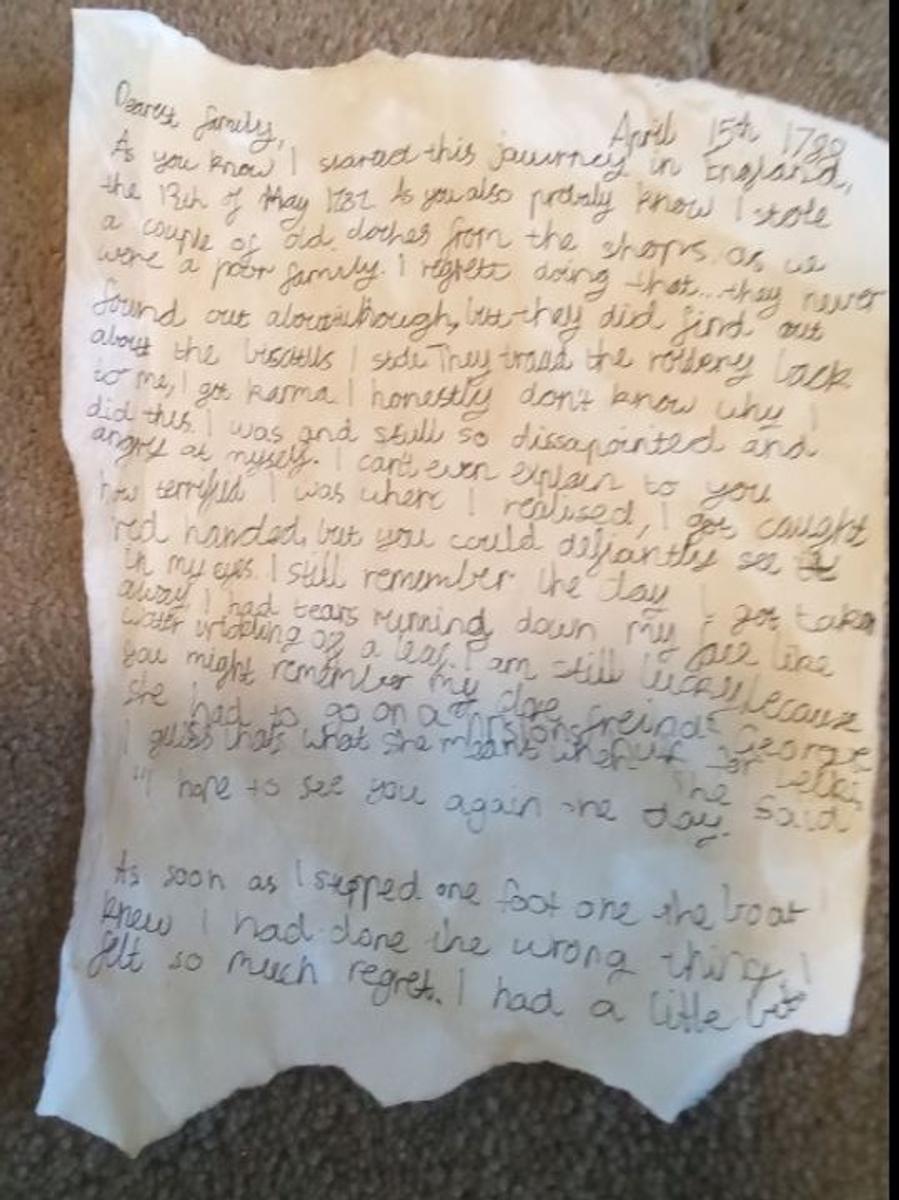 April 15th 1788
Dearest family,
As you know I started this jouurney in England,
the 13th of May 1787. As you also probaly know I stole
a couple of old clothes from the shops as we
were a poor family. I regrett doing that...they never
found out about though, but they did find out
about the I stole. They traced the robbery back
to me, I got karma. I honestly don't know why I
did this. I was and still so dissapointed and
angry at myself. I can't even explain to you
how terrified I was when I realised, I got caught
red handed, but you could defiantly see it
in my eyes. I still remember the day I got taken
away, I had tears running down my face like
water of a leaf. I am still lucky because
you might remember my close freind George
she had to go on a for
I guess thats what she meant when she said
"I hope to see you again one day.
As soon as I stepped one foot one the boat I
knew I had done the wrong thing, I
felt so much regret. I had a little bit